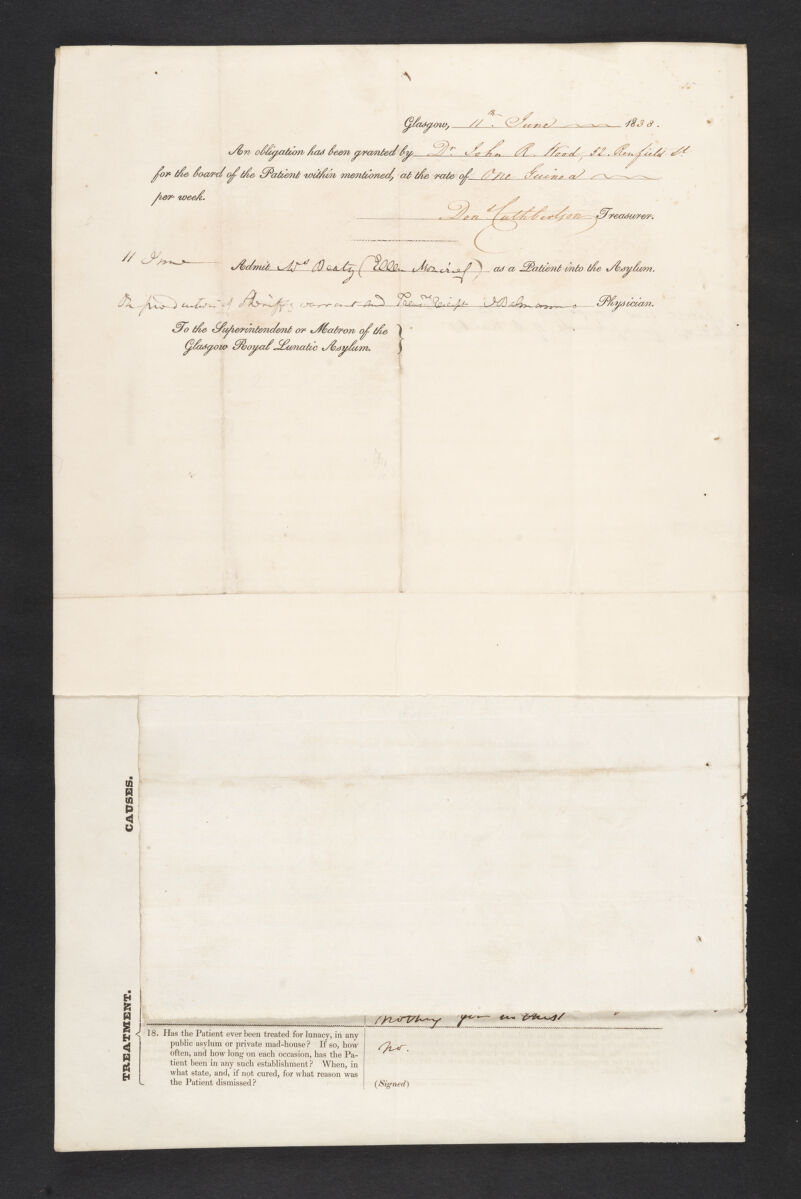 Glasgow, 11th June 1838.
An obligation has been granted by Dr. John R. Wood, 52. Renfield St
for the board of the Patient within mentioned, at the rate of One Guinea
per week.
Cuthbertson Treasurer.
11 June Admit Mrs Beaty (Ellen ) as a Patient into the Asylum.
On production of Sheriffs warrant and Physician.
To the Superintendent or Matron of the
Glasgow Royal Lunatic Asylum.
CAUSES.
TREATMENT.
nothing
18. Has the Patient ever been treated for lunacy, in any
public asylum or private mad-house? If so, how
often, and how long on each occasion, has the Pa-
tient been in any such establishment? When, in
what state, and, if not cured, for what reason was
the Patient dismissed?
No.
(Signed)